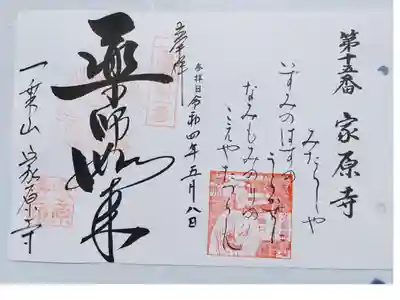 第十五番 家原寺
みたらしや
いずみのはすの
うらかぜに
なみもみのりの
こえやまつらん
奉拝
参拝日 令和四年五月八日
薬師如来
一乗山 家原寺